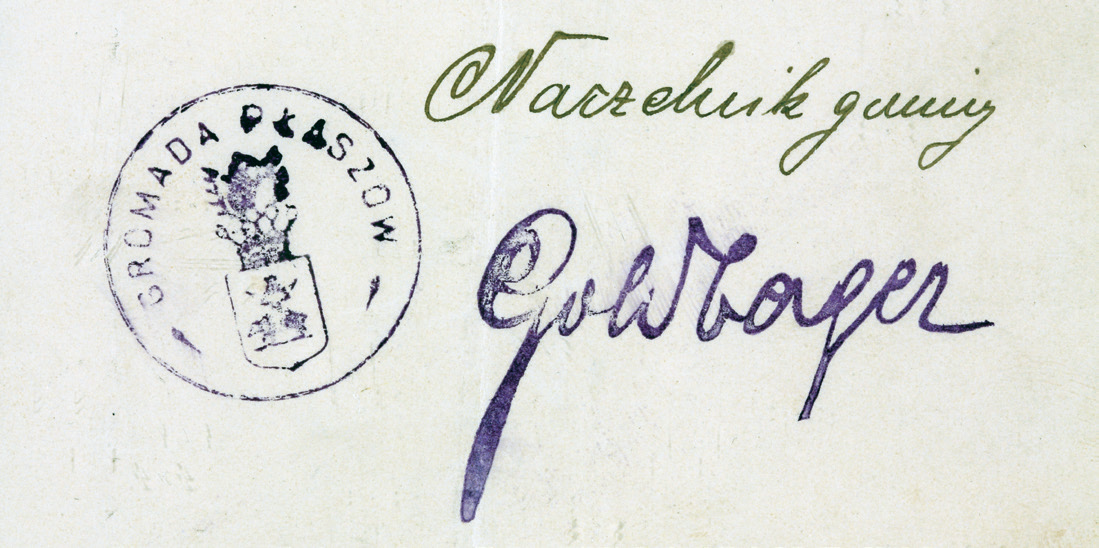 GROMADA PŁASZOW
Naczelnik gminy
Goldbager